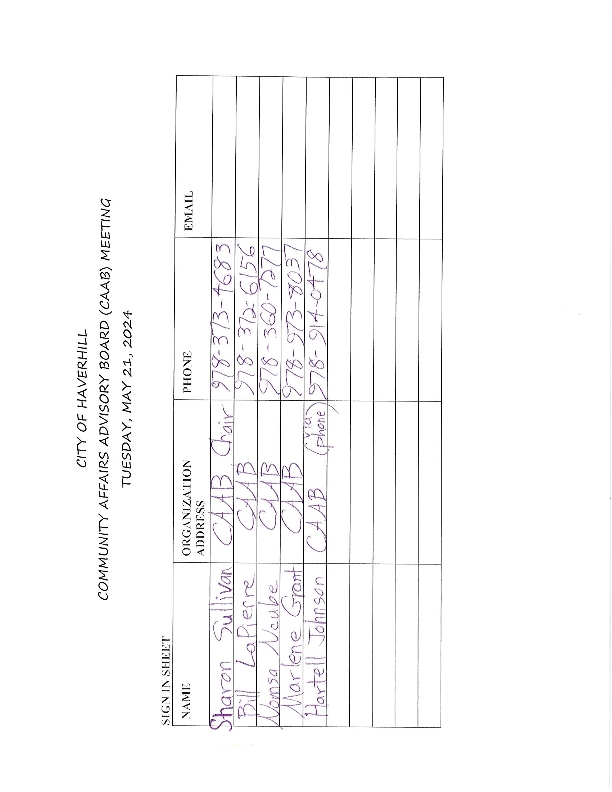 CITY OF HAVERHILL
COMMUNITY AFFAIRS ADVISORY BOARD (CAAB) MEETING
TUESDAY, MAY 21, 2024
SIGN IN SHEET
NAME ORGANIZATION ADDRESS PHONE EMAIL
Sharon Sullivan CAAB Chair 978-373-4683
Bill LaPierre CAAB 978-372-6156
Nomsa Ncube CAAB 978-360-7277
Marlene Grant CAAB 978-973-8037
Hartell Johnson CAAB (via phone) 978-914-0478